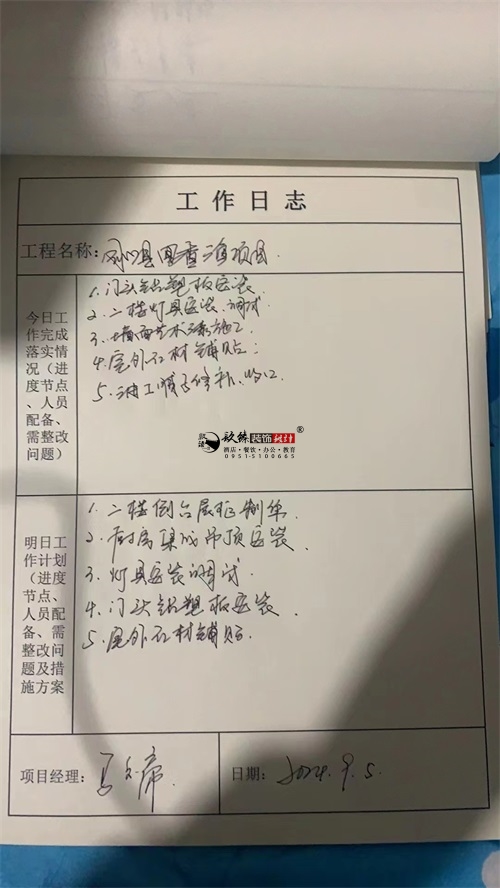 工作日志
工程名称:
今日工作完成落实情况（进度节点、人员配备、需整改问题）
1. 门头铝塑板安装
2. 二楼灯具安装、调试
3. 墙面艺术漆施工
4. 屋外石材铺贴
5. 油工修补、收口
玖臻装饰设计®
酒店·餐饮·办公·教育
0951-5100665
明日工作计划（进度节点、人员配备、需整改问题及措施方案
1. 二楼
2. 厨房集成吊顶安装
3. 灯具安装调试
4. 门头铝塑板安装
5. 屋外石材铺贴
项目经理:
日期: 2024.9.5.